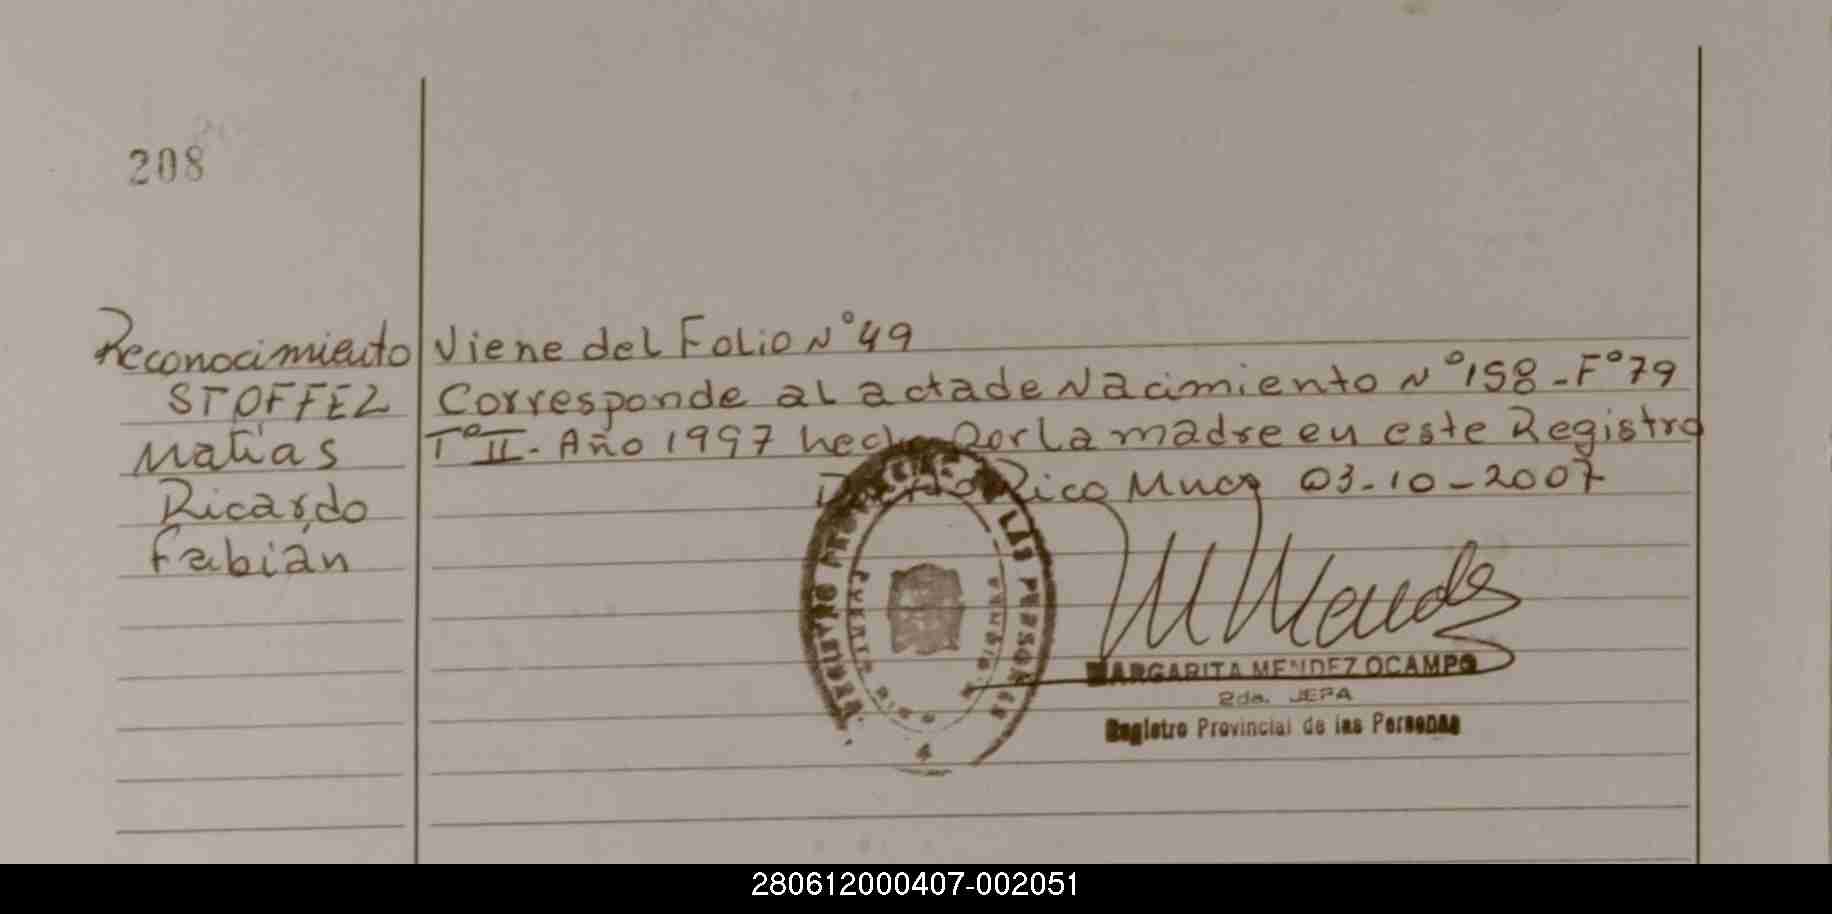 208
Reconocimiento
STOFFEL
Matías
Ricardo
Fabián
Viene del Folio N°49
Corresponde al acta de Nacimiento N°158-F°79
T°II-Año 1997 hecho por la madre en este Registro
Puerto Rico Mnes 03-10-2007
REGISTRO PROVINCIAL DE LAS PERSONAS
PUERTO RICO
4
MARGARITA MENDEZ OCAMPO
2da. JEFA
Registro Provincial de las Personas
280612000407-002051